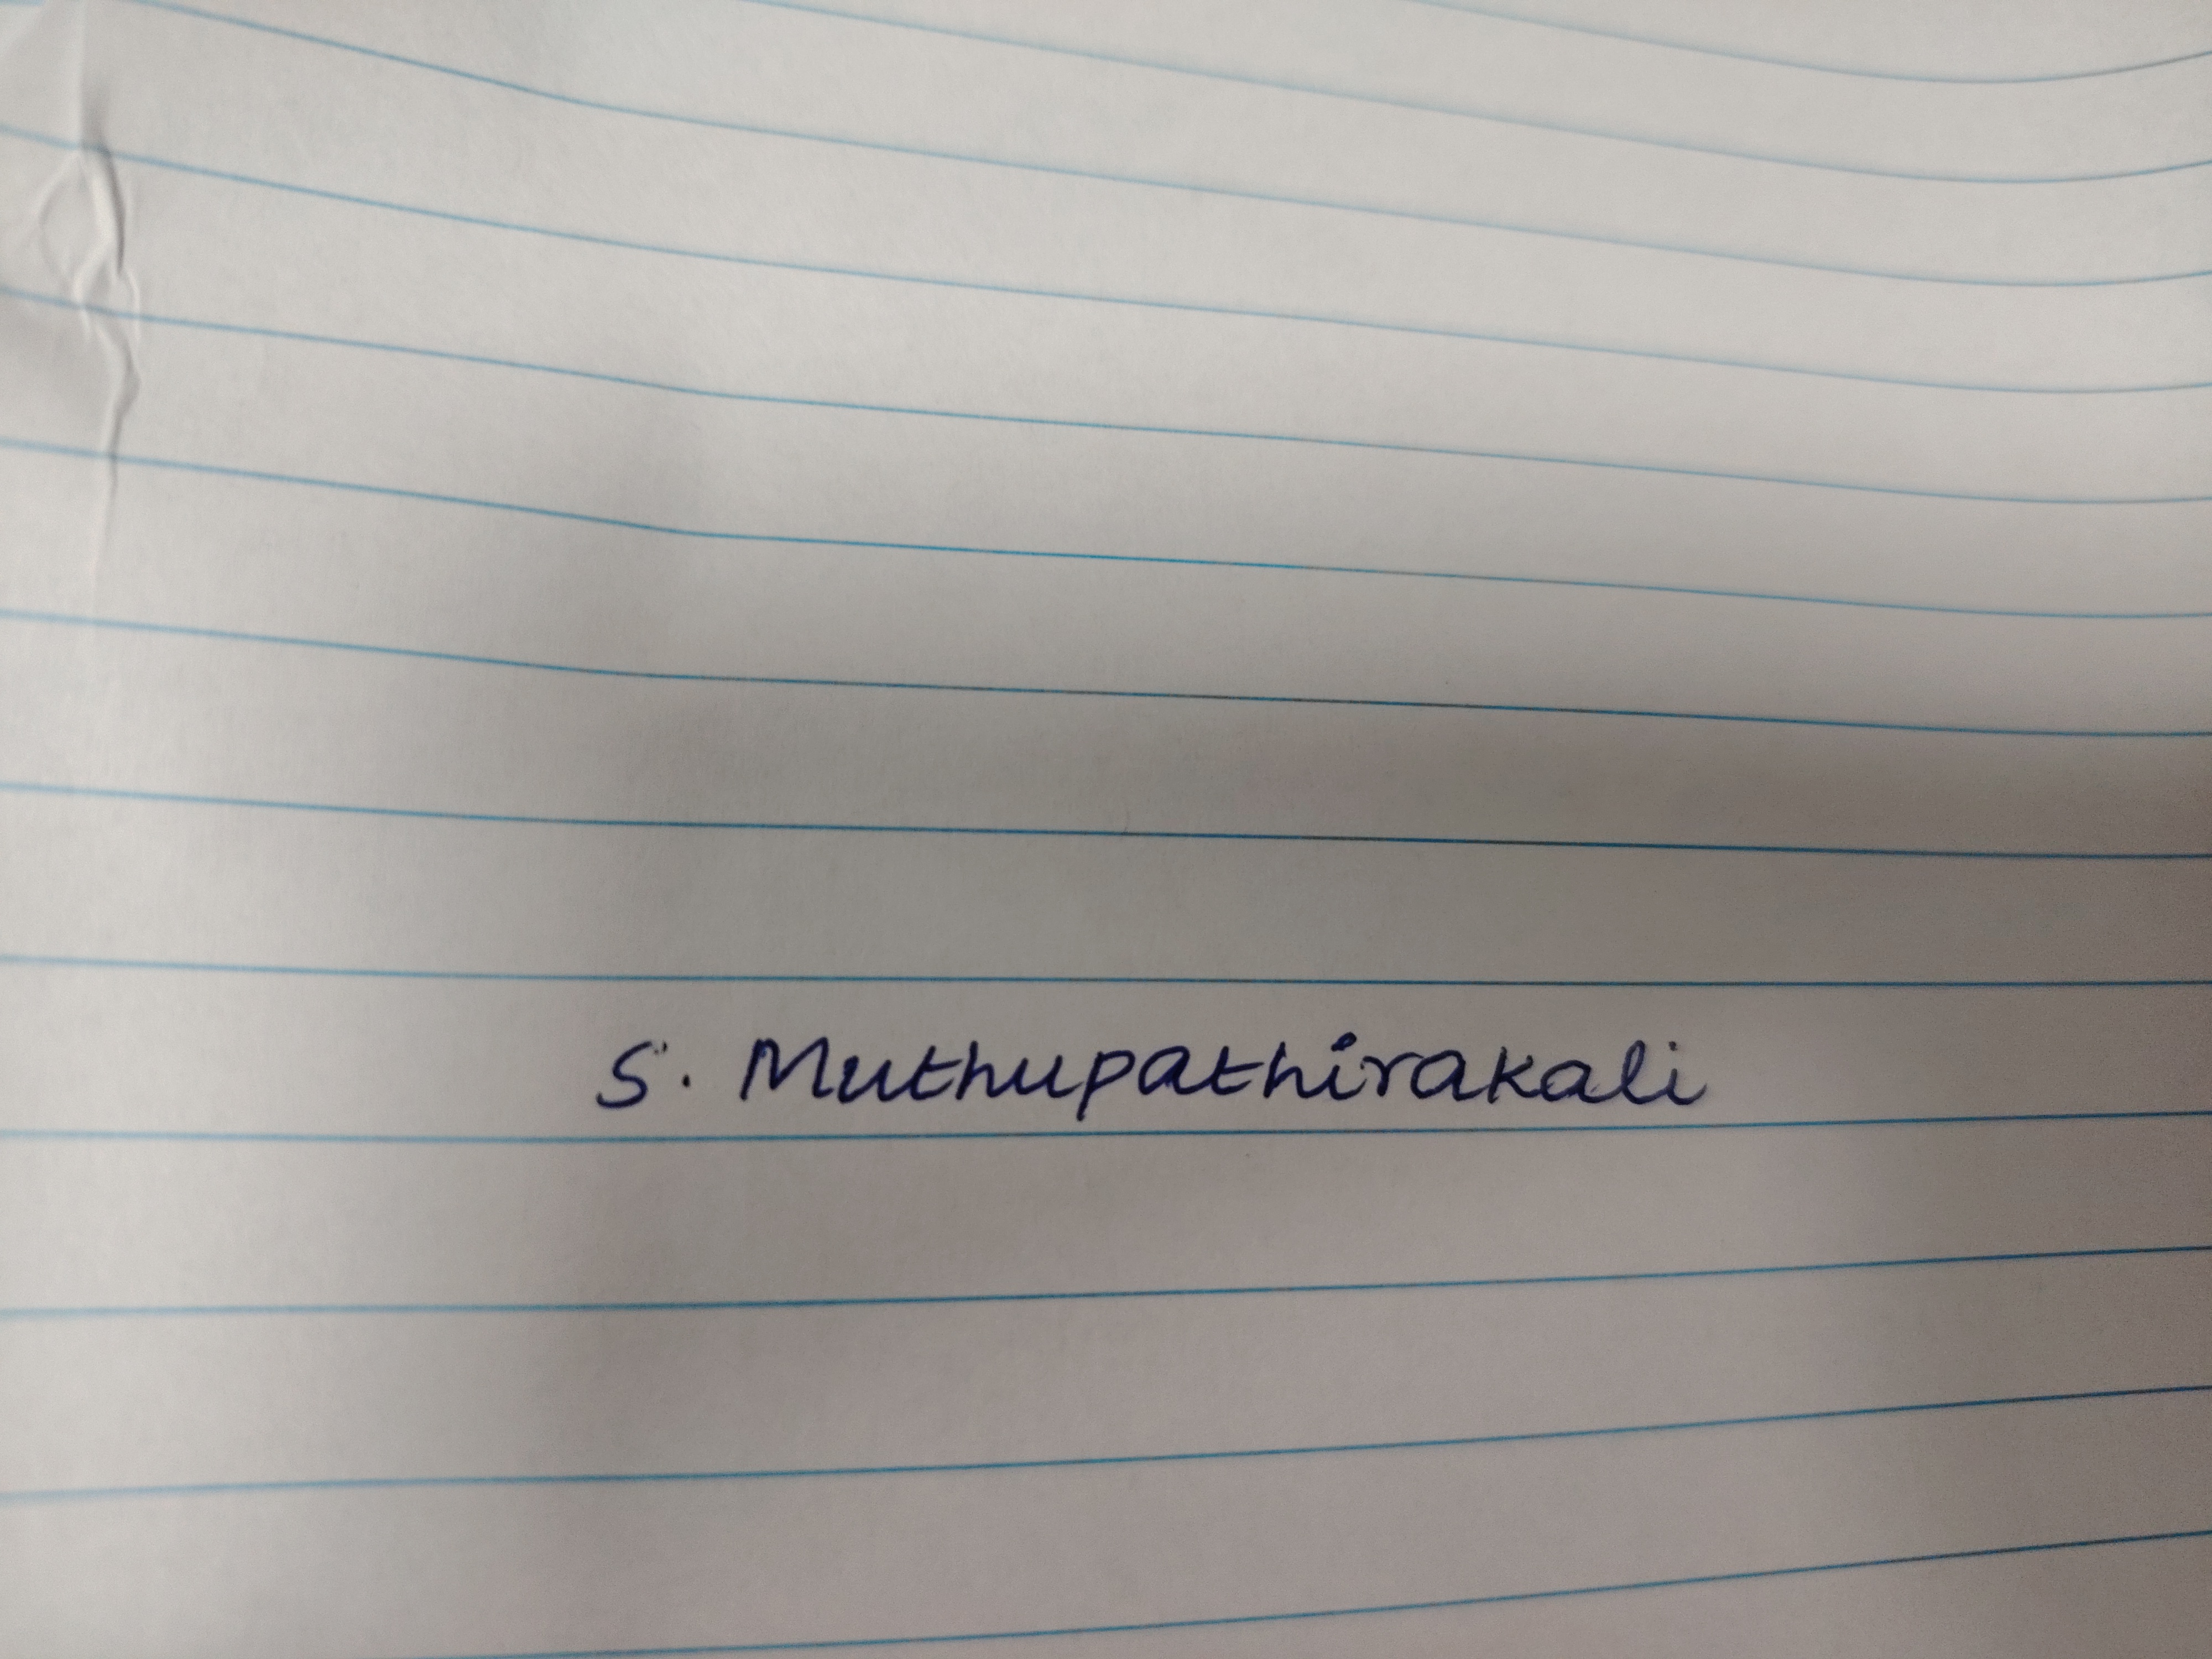 S. Muthupathirakali